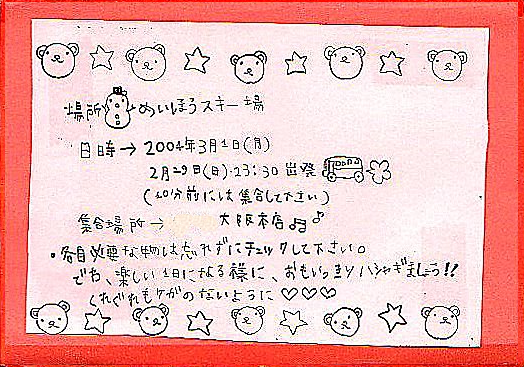 場所 めいほうスキー場
日時→2004年3月1日(月)
2月29日(日)・23:30 出発
(10分前には集合して下さい)
集合場所→ 大阪本店
・各自必要な物は忘れずにチェックして下さい。
でわ、楽しい1日になる様に、おもいっきりハシャギましょう!!
くれぐれもケガのないように♡♡♡